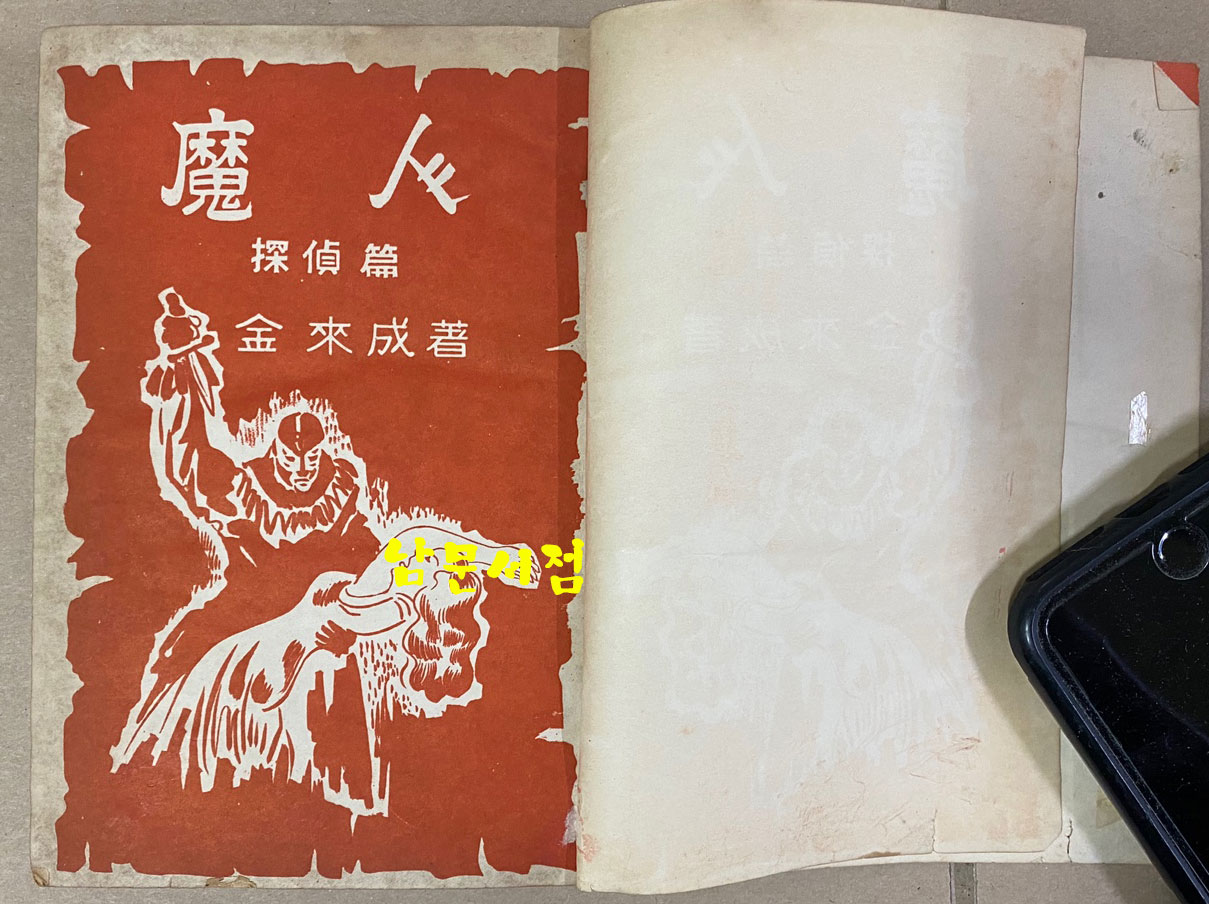 魔人
探偵篇
金來成著
남문서점